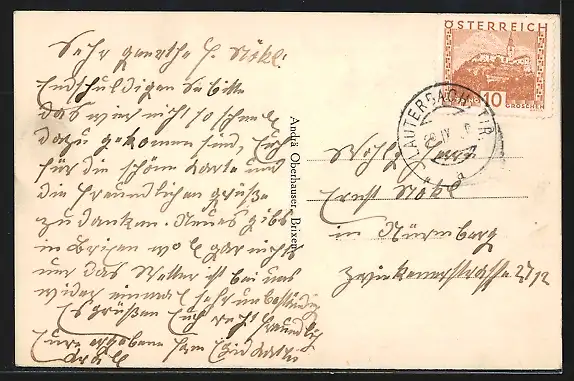 Sehr geerther H. Nökl.
Entschuldigen Sie bitte
das wier nicht so schnell
dazu gekommen sind, Euch
für die schöne Karte und
die freundlichen grüße
zu danken. Neues gibts
in Brixen wol gar nichts
nur das Wetter ist bei uns
wider einmal sehr unbeständig
Es grüßen Euch recht freundlich
Eure ergebene Fam.
Andrä Oberhauser, Brixen
ÖSTERREICH
10
GROSCHEN
LAUTERBACH, TIR.
Herrn
Ernst Nökl
in Nürnberg